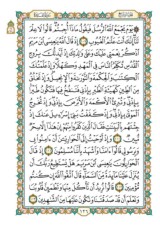 يَوْمَ يَجْمَعُ ٱللَّهُ ٱلرُّسُلَ فَيَقُولُ مَاذَآ أُجِبْتُمْ قَالُوا۟ لَا عِلْمَ
لَنَآ إِنَّكَ أَنتَ عَلَّٰمُ ٱلْغُيُوبِ إِذْ قَالَ ٱللَّهُ يَٰعِيسَى ٱبْنَ مَرْيَمَ
ٱذْكُرْ نِعْمَتِى عَلَيْكَ وَعَلَىٰ وَٰلِدَتِكَ إِذْ أَيَّدتُّكَ بِرُوحِ
ٱلْقُدُسِ تُكَلِّمُ ٱلنَّاسَ فِى ٱلْمَهْدِ وَكَهْلًا وَإِذْ عَلَّمْتُكَ
ٱلْكِتَٰبَ وَٱلْحِكْمَةَ وَٱلتَّوْرَىٰةَ وَٱلْإِنجِيلَ وَإِذْ تَخْلُقُ
مِنَ ٱلطِّينِ كَهَيْـَٔةِ ٱلطَّيْرِ بِإِذْنِى فَتَنفُخُ فِيهَا فَتَكُونُ طَيْرًۢا
بِإِذْنِى وَتُبْرِئُ ٱلْأَكْمَهَ وَٱلْأَبْرَصَ بِإِذْنِى وَإِذْ تُخْرِجُ
ٱلْمَوْتَىٰ بِإِذْنِى وَإِذْ كَفَفْتُ بَنِىٓ إِسْرَٰٓءِيلَ عَنكَ إِذْ
جِئْتَهُم بِٱلْبَيِّنَٰتِ فَقَالَ ٱلَّذِينَ كَفَرُوا۟ مِنْهُمْ إِنْ هَٰذَآ إِلَّا
سِحْرٌ مُّبِينٌ وَإِذْ أَوْحَيْتُ إِلَى ٱلْحَوَارِيِّـۧنَ أَنْ ءَامِنُوا۟ بِى
وَبِرَسُولِى قَالُوٓا۟ ءَامَنَّا وَٱشْهَدْ بِأَنَّنَا مُسْلِمُونَ إِذْ قَالَ
ٱلْحَوَارِيُّونَ يَٰعِيسَى ٱبْنَ مَرْيَمَ هَلْ يَسْتَطِيعُ رَبُّكَ أَن يُنَزِّلَ
عَلَيْنَا مَآئِدَةً مِّنَ ٱلسَّمَآءِ قَالَ ٱتَّقُوا۟ ٱللَّهَ إِن كُنتُم
مُّؤْمِنِينَ قَالُوا۟ نُرِيدُ أَن نَّأْكُلَ مِنْهَا وَتَطْمَئِنَّ قُلُوبُنَا
وَنَعْلَمَ أَن قَدْ صَدَقْتَنَا وَنَكُونَ عَلَيْهَا مِنَ ٱلشَّٰهِدِينَ
١٢٦